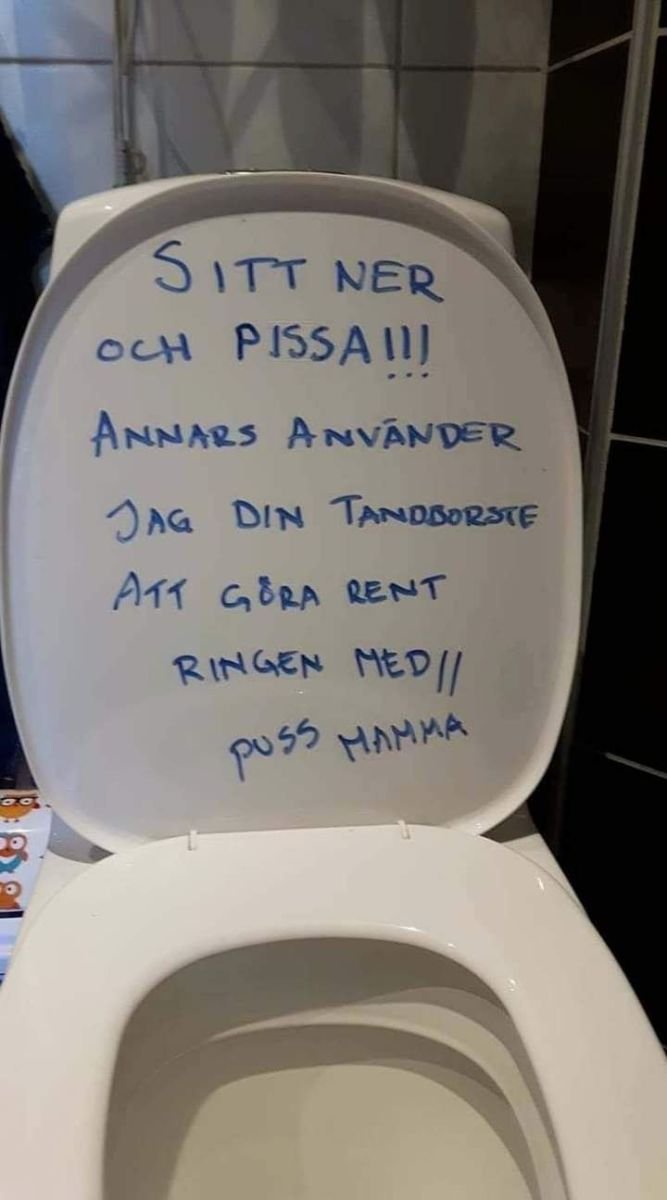 SITT NER
OCH PISSA!!!
ANNARS ANVÄNDER
JAG DIN TANDBORSTE
ATT GÖRA RENT
RINGEN MED//
PUSS MAMMA